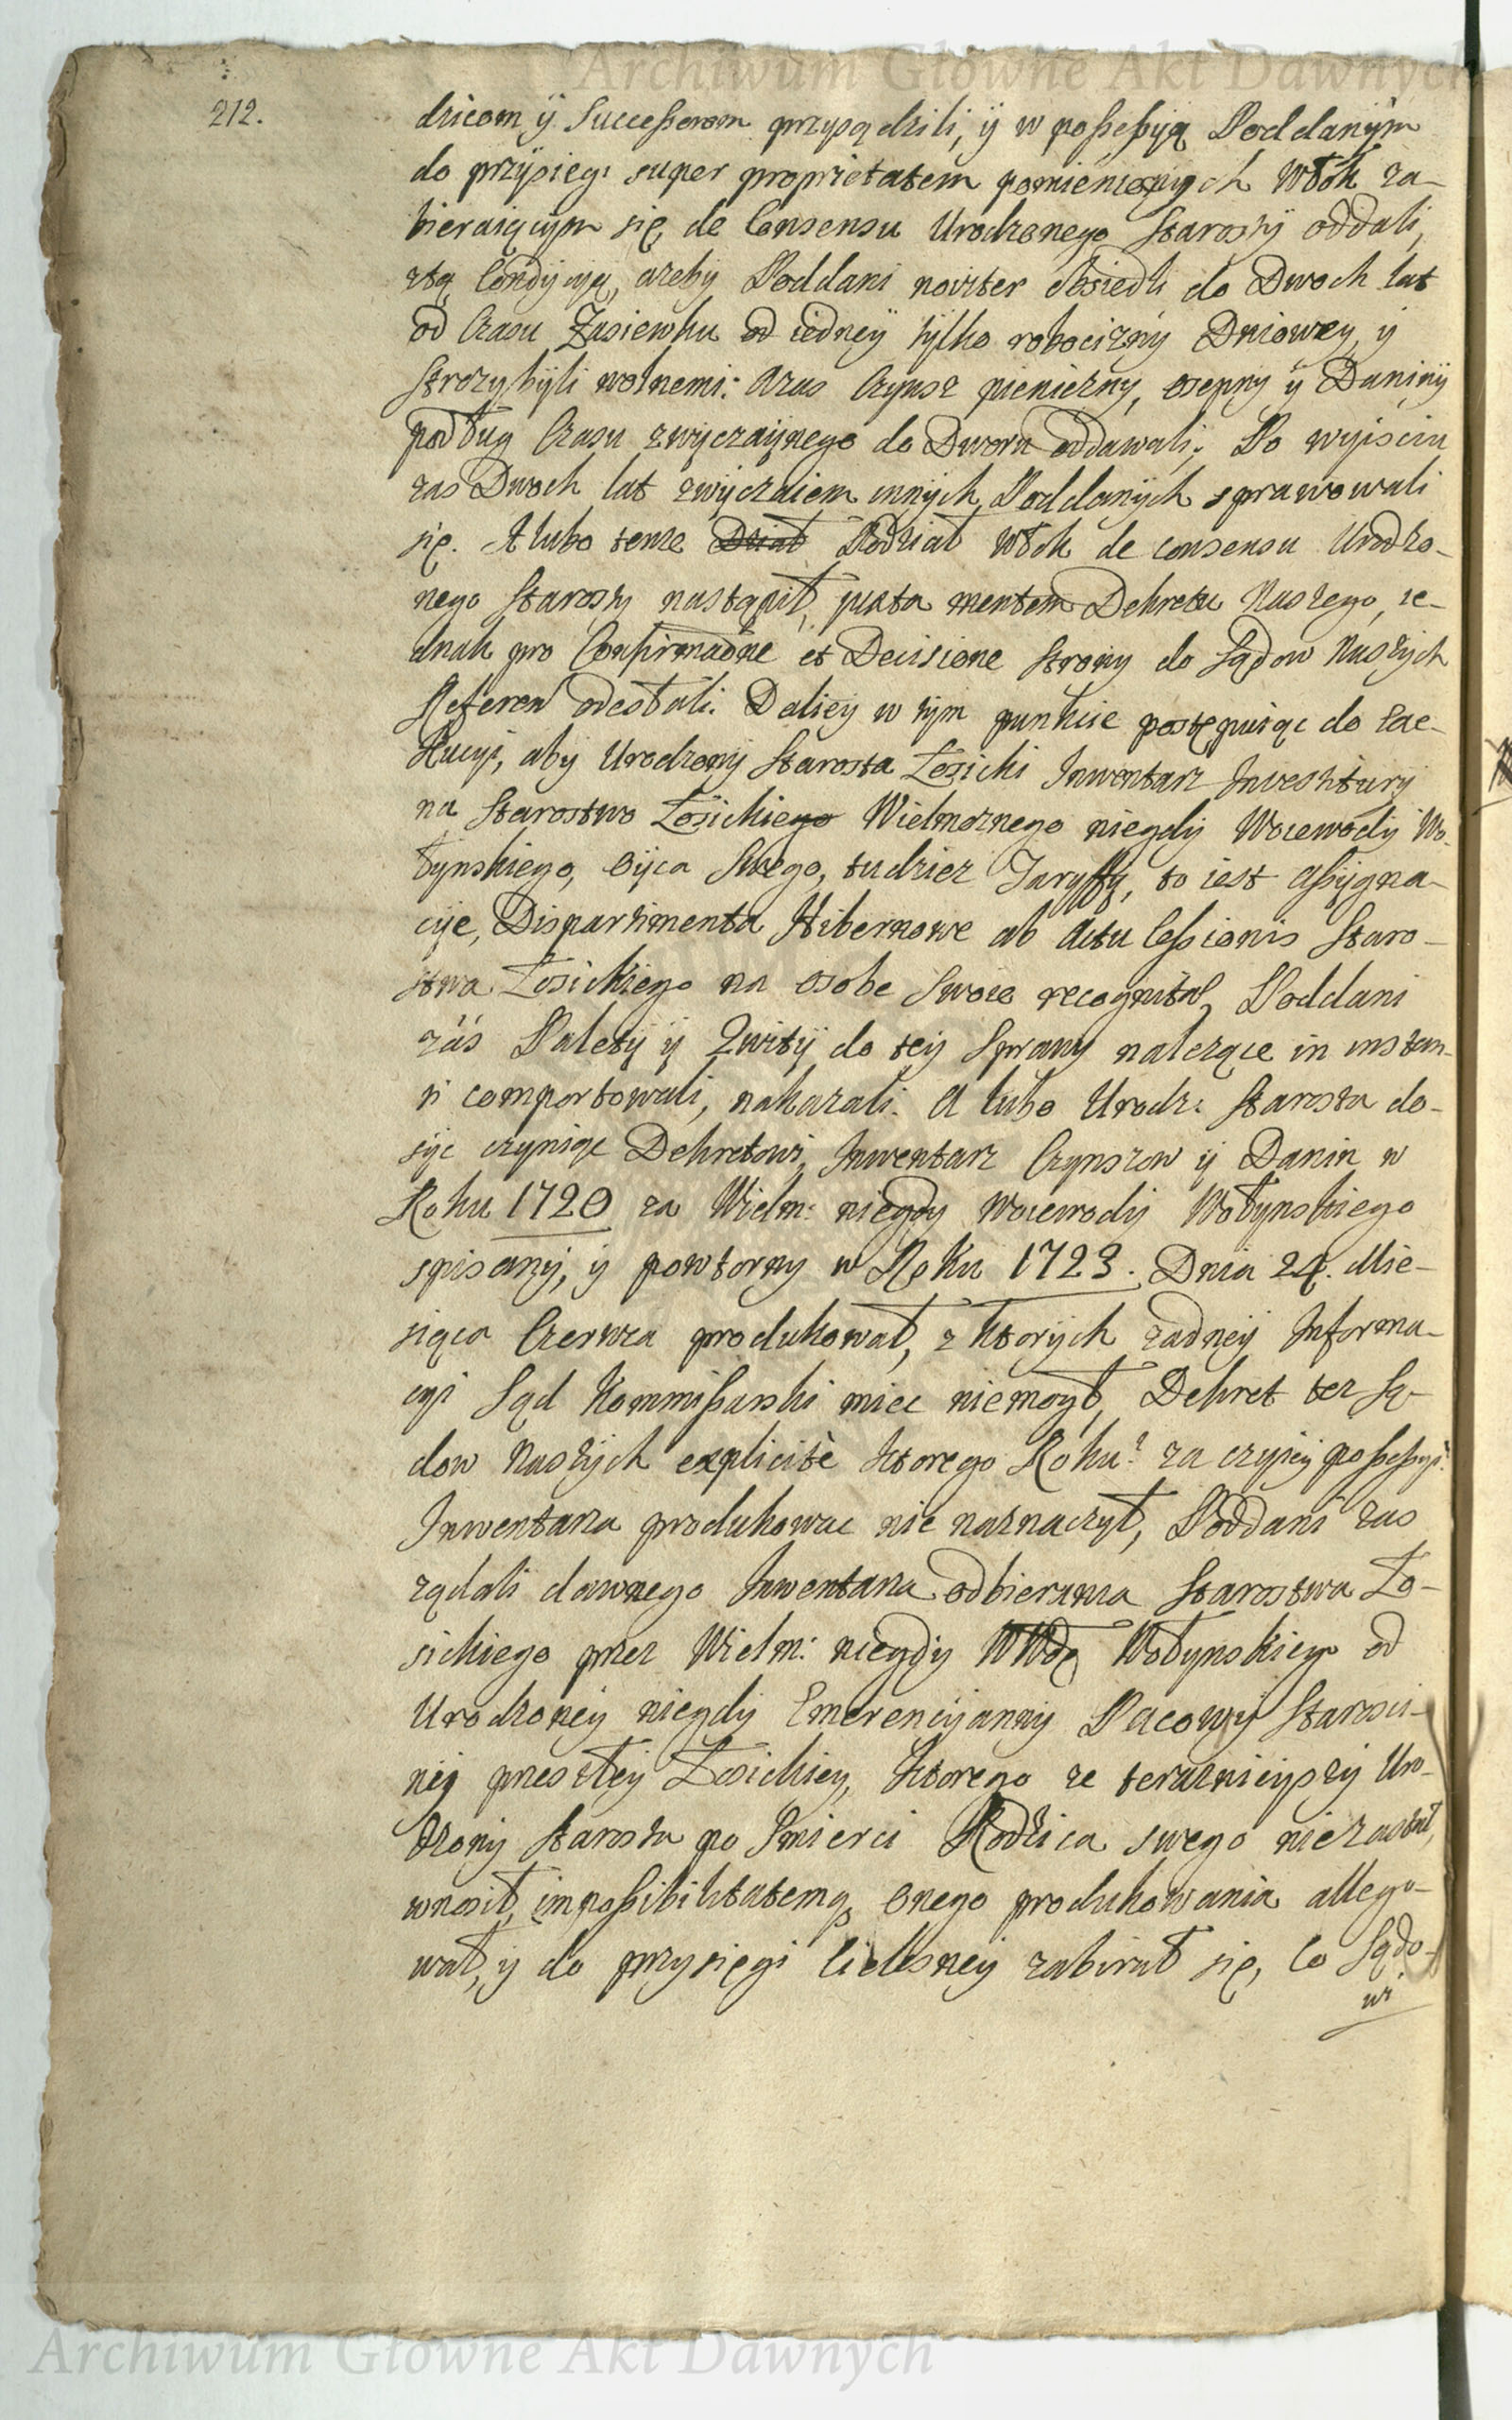 Archiwum Główne Akt Dawnych
212.
dzicom ÿ Successorom przysądzili, ÿ w possessyą Poddanÿm
do przÿsięgi super proprietatem pomienionych Włok za-
bieraiącym się, de Consensu Urodzonego Starosty oddali,
ztą Condÿcyą, azeby Poddani noviter obsiedli do Dwoch lat
od Czasu Zasiewku od iedneÿ tÿlko robocizny Dniowey, ÿ
Strozy bÿli wolnemi: a zas Czynsz pieniezny, osepny ÿ Daninÿ
podług Czasu zwÿczaÿnego do Dworu oddawali; Po wyisciu
zas Dwoch lat zwÿczaiem innÿch Poddanÿch sprawowali
się. A lubo tenze Dział Podział Włok de consensu Urodzo-
nego Starosty nastąpił, juxta mentem Dekretu Naszego, ie-
dnak pro Confirmaõne et Decisione Strony do Sądow Naszÿch
Referen odesłali. Daliey w tÿm punkcie postępuiąc do Exe-
kucyi, aby Urodzony Starosta Łosicki Inwentarz Inwestitury
na Starostwo Łosickiego Wielmoznego niegdy Woiewody Wo-
łynskiego, Oÿca Swego, tudziez Taryffy, to iest Assÿgna-
cÿe, Dispartimenta Hibernowe ab Actu Cessionis Staro-
stwa Łosickiego na osobe Swoie recognitae, Poddani
zás Paletÿ ÿ Qwitÿ do teÿ Sprawy nalezące in instan-
ti comportowali, nakazali. A lubo Urodz: Starosta do-
sÿc czyniąc Dekretowi, Inwentarz Czynszow ÿ Danin w
Roku 1720 za Wielm: niegdy Woiewodÿ Wołynskiego
spisany, ÿ powtorny w Roku 1723. Dnia 24. Mie-
siąca Czerwca produkował, z ktorÿch zadneÿ Informa-
cyi Sąd Kommissarski miec niemogł, Dekret tez Są-
dow Naszÿch explicitè ktorego Roku? za czyieÿ possessyi?
Inwentarza produkowac nie naznaczył, Poddani zas
ządali dawnego Inwentarza odbierania Starostwa Ło-
sickiego przez Wielm: niegdy WWdę Wołynskiego od
Urodzoneÿ niegdy Emerencÿanny Pacowÿ Starosci-
neÿ przeszłeÿ Łosickiey, ktorego ze teraznieÿszÿ Uro-
dzony Starosta po Smierci Rodzica swego niezastał,
wnosił, impossibilitatemq₃ onego produkowania allego-
wał, ÿ do przysięgi Cielesneÿ zabirał się, Co Sądo-
wi
Archiwum Główne Akt Dawnych